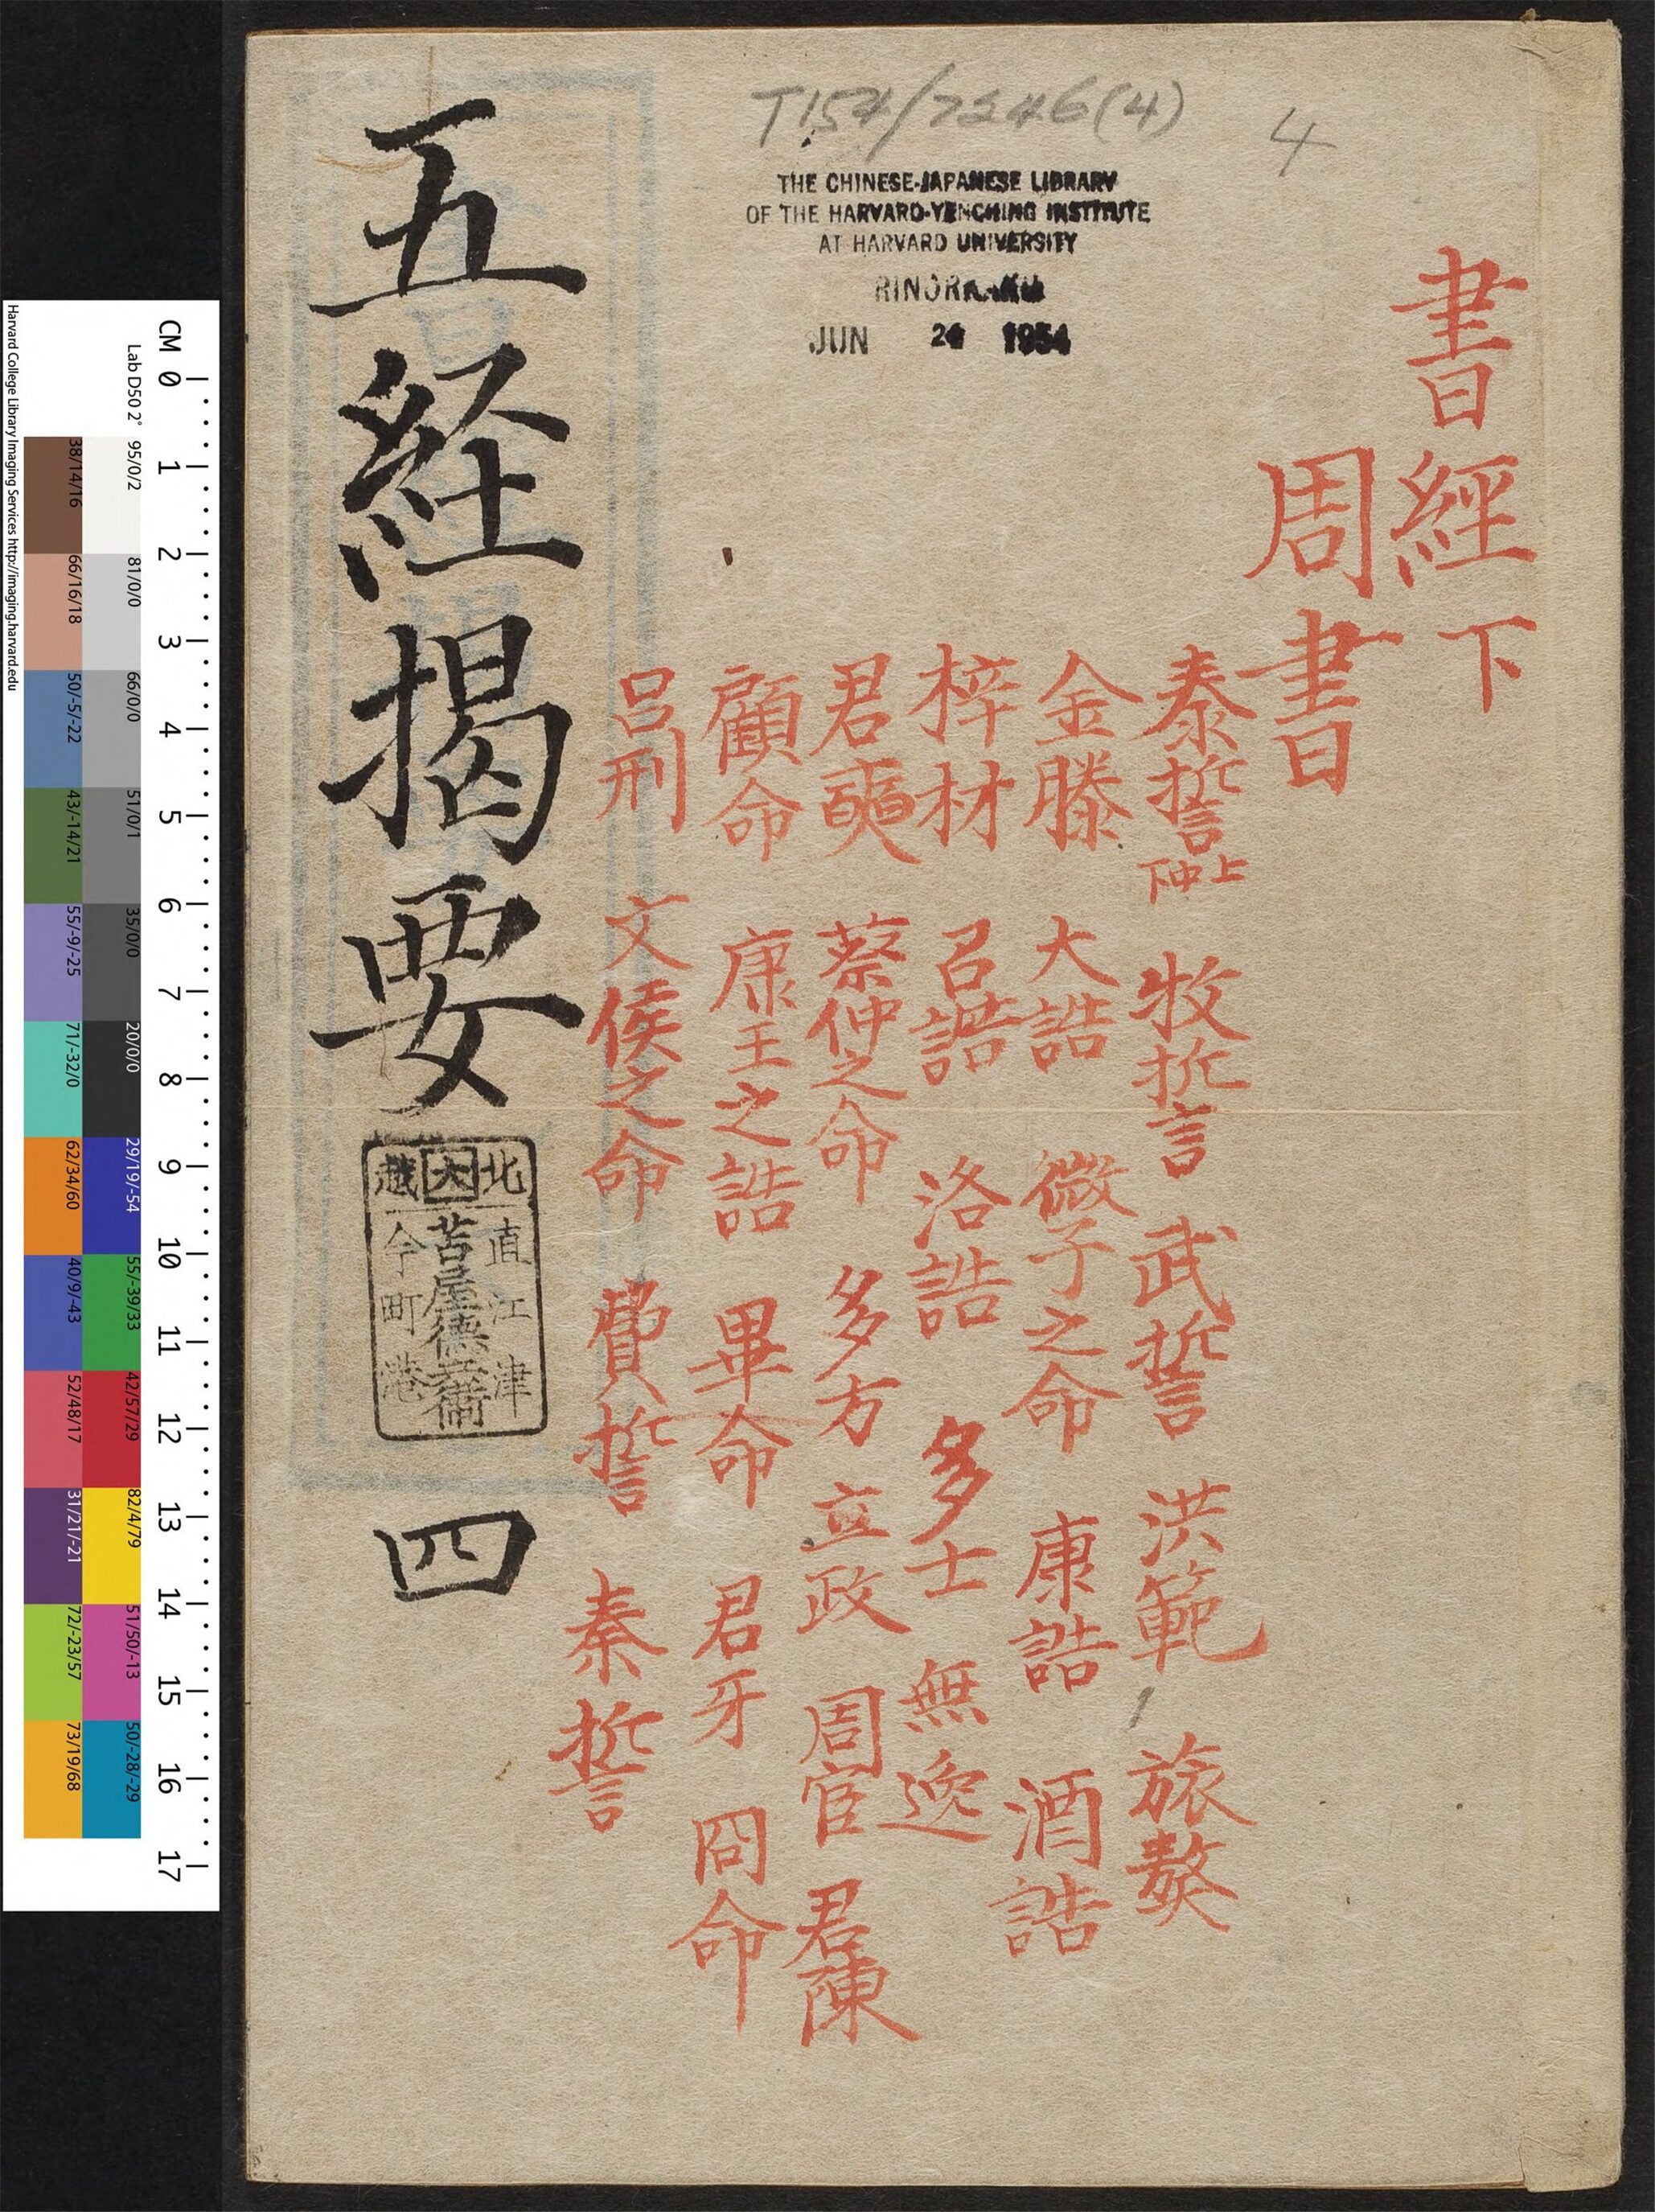 T154/7546(4)
4
THE CHINESE-JAPANESE LIBRARY
OF THE HARVARD-YENCHING INSTITUTE
AT HARVARD UNIVERSITY
JUN 24 1954
書經下
周書
泰誓上中下 牧誓 武誓 洪範 旅獒
金滕 大誥 微子之命 康誥 酒誥
梓材 召誥 洛誥 多士 無逸
君奭 蔡仲之命 多方 立政 周官 君陳
顧命 康王之誥 畢命 君牙 冏命
呂刑 文侯之命 費誓 秦誓
五経揭要 四
北大越
直江津
苫屋德兵衛
今町港
CM 0 1 2 3 4 5 6 7 8 9 10 11 12 13 14 15 16 17
Lab D50 2° 95/0/2 81/0/0 66/0/0 51/0/1 35/0/0 20/0/0 29/19/-54 55/-39/33 42/57/29 82/4/79 51/50/-13 50/-28/-29
38/14/16 66/16/18 50/-5/-22 43/-14/21 55/-9/-25 71/-32/0 62/34/60 40/9/-43 52/48/17 31/21/-21 72/-23/57 73/19/68
Harvard College Library Imaging Services http://imaging.harvard.edu